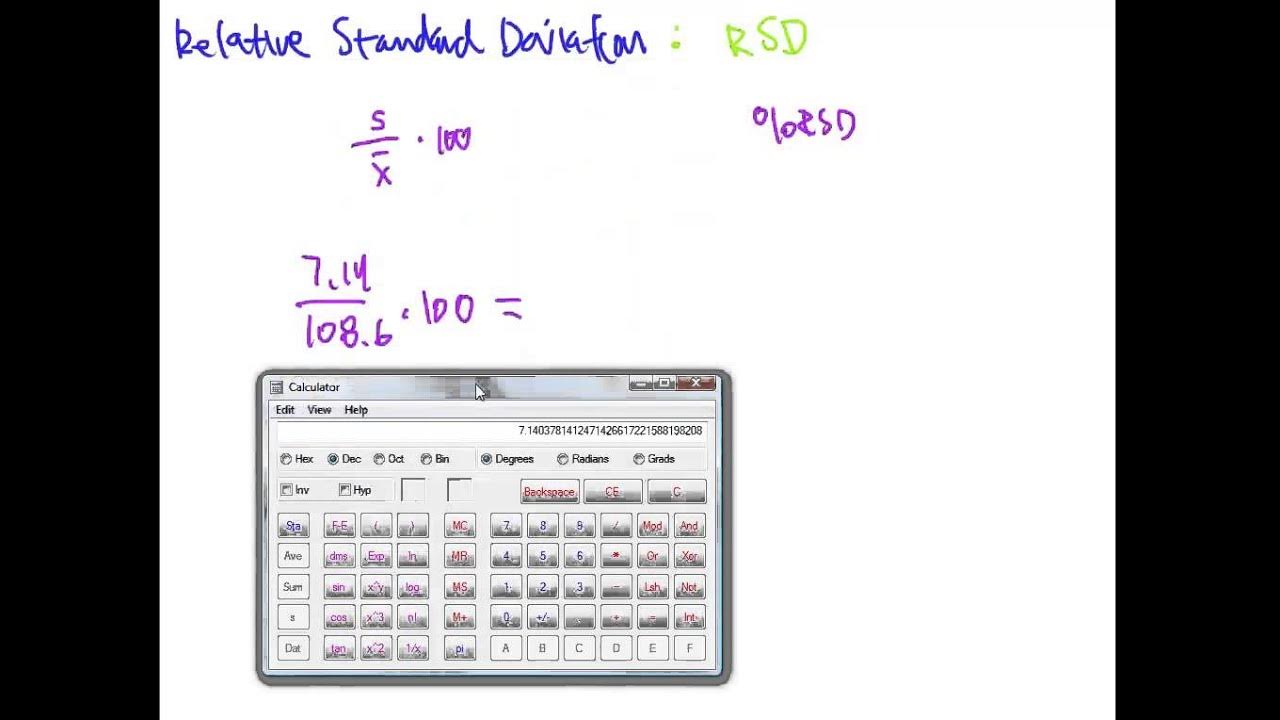 Relative Standard Deviation : RSD
s/x̄ · 100
%RSD
7.14/108.6 · 100 =
Calculator
Edit View Help
7.1403781412471426617221588198208
Hex Dec Oct Bin Degrees Radians Grads
Inv Hyp Backspace CE C
Sta F-E ( ) MC 7 8 9 / Mod And
Ave dms Exp ln MR 4 5 6 * Or Xor
Sum sin x^y log MS 1 2 3 - Lsh Not
s cos x^3 n! M+ 0 +/- . + = Int
Dat tan x^2 1/x pi A B C D E F